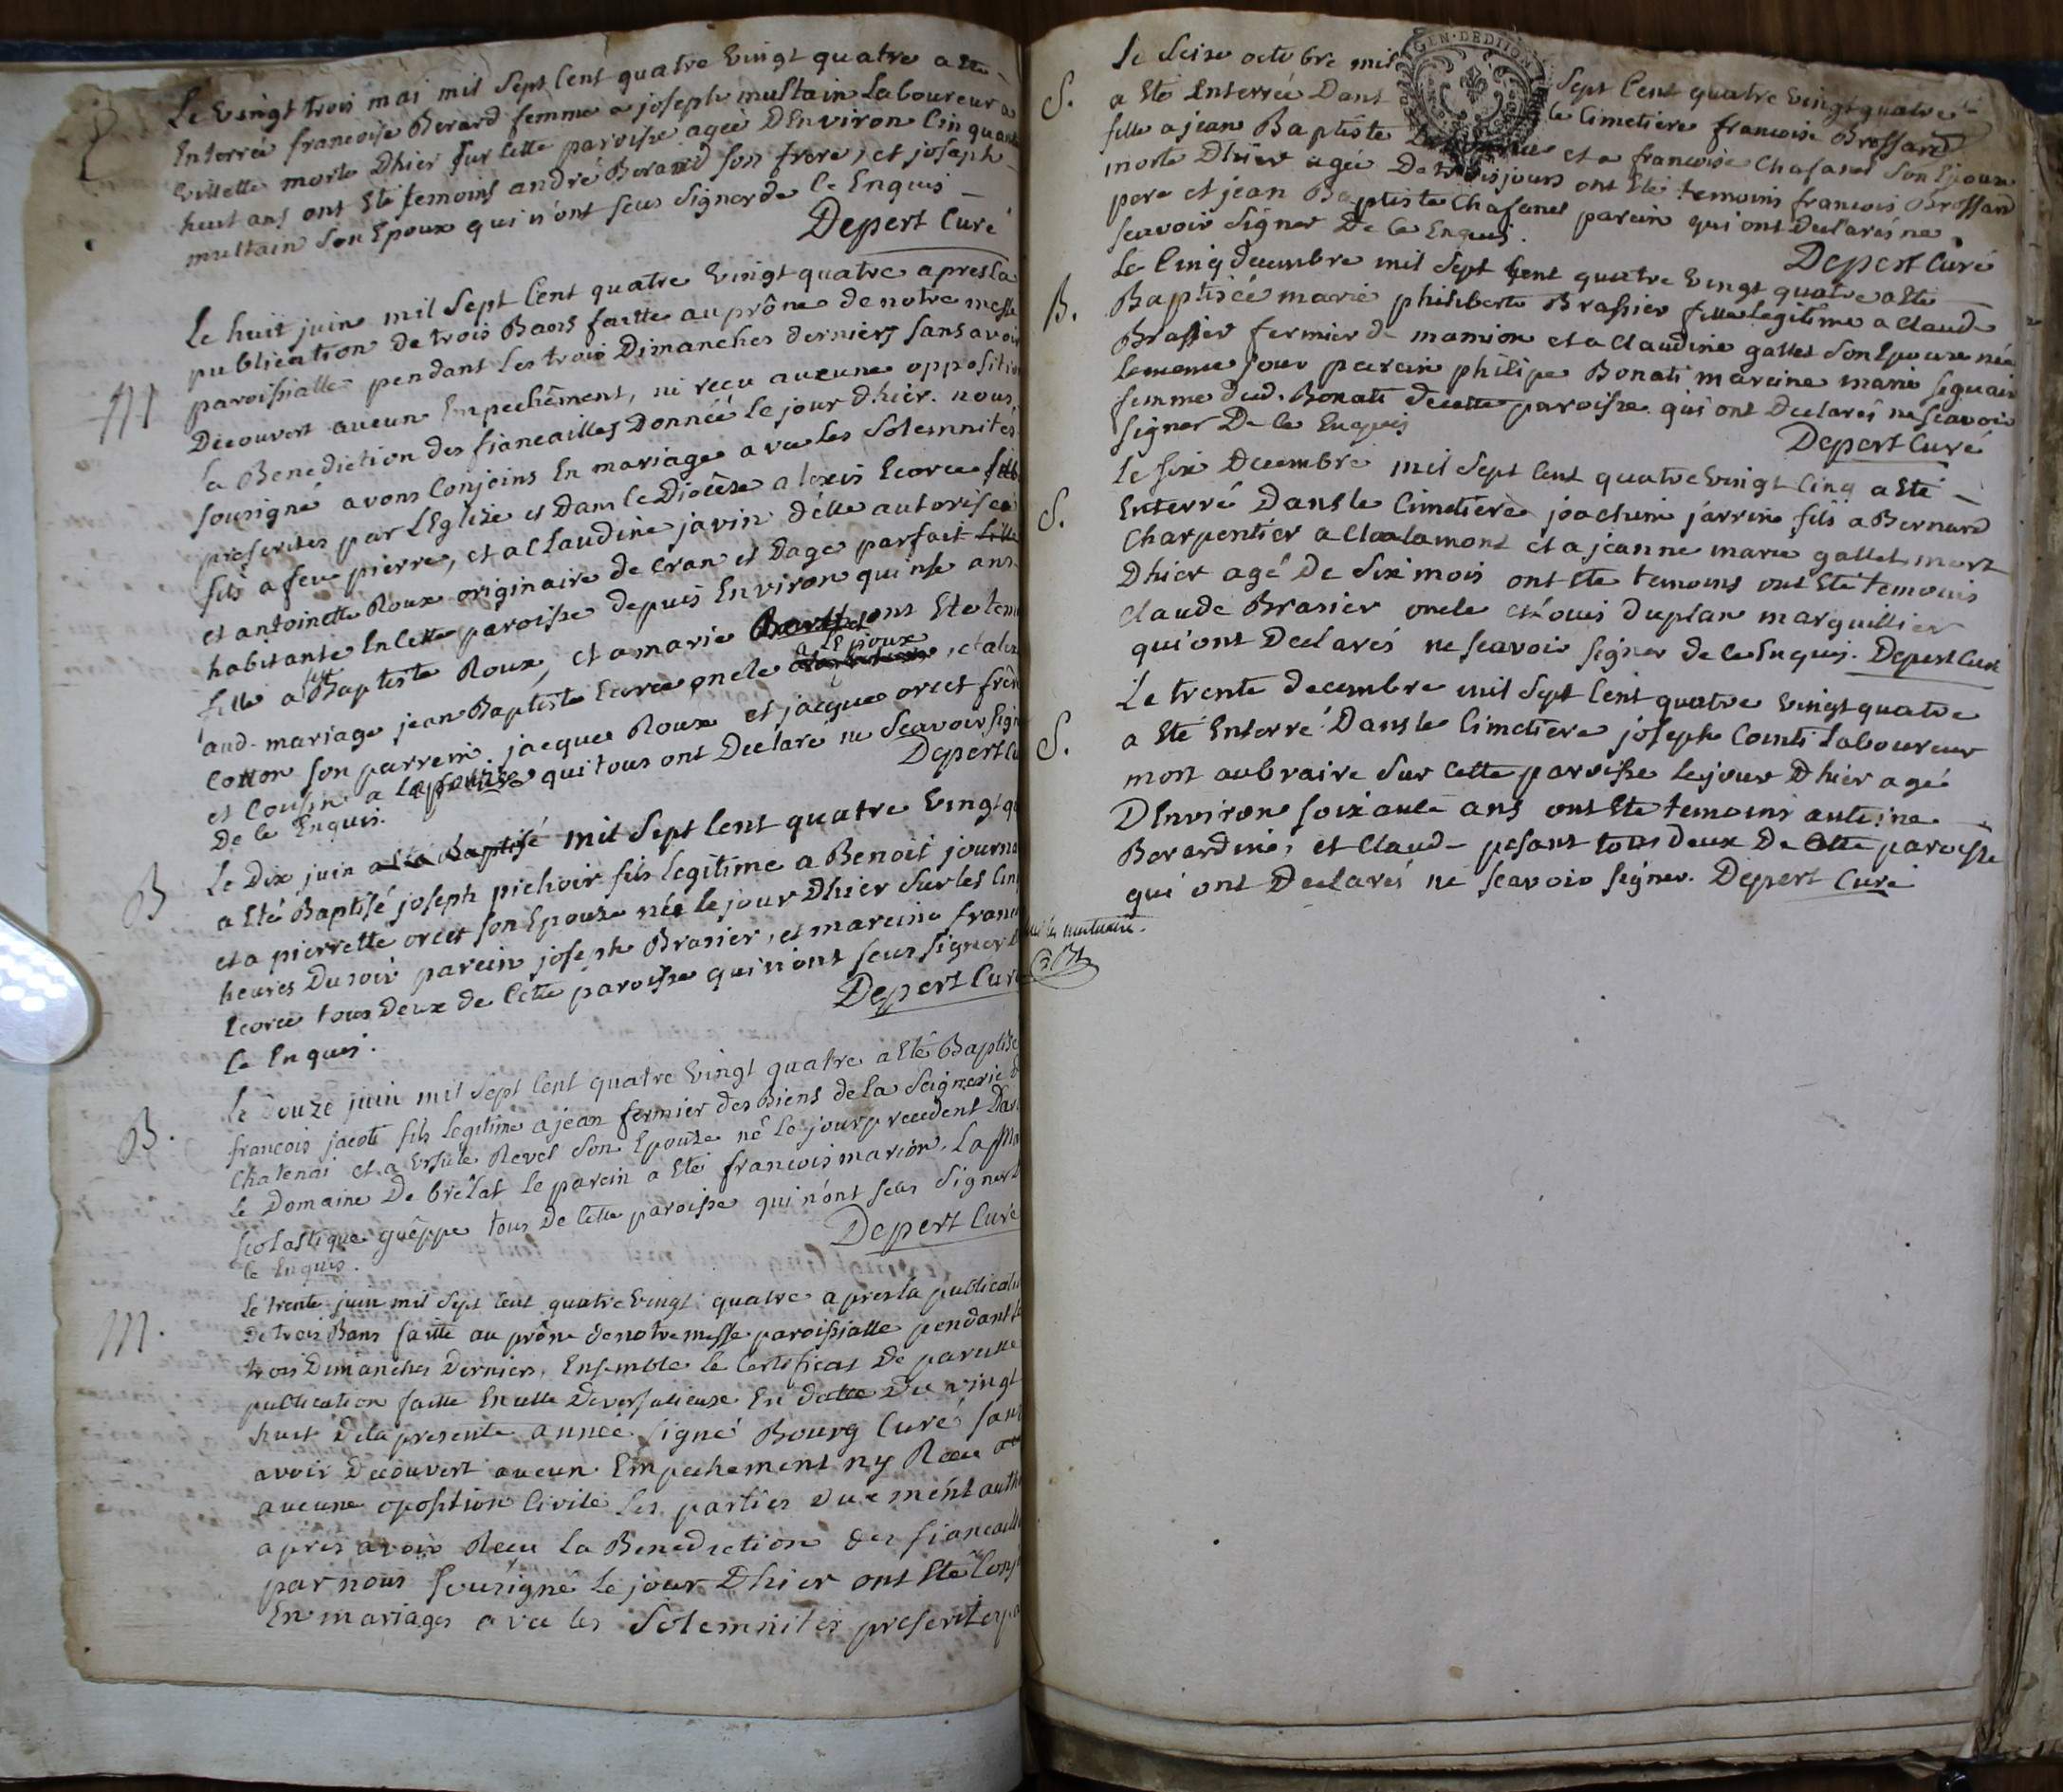 Le Vingt trois mai mil Sept Cent quatre Vingt quatre a Eté
Enterrée francoise Berard femme a joseph multain Laboureur a
Villette morte Dhier sur Cette paroisse agée DEnviron Cinquante
huit ans ont Eté temoins andré Berard son frere, et joseph
multain son Epoux qui n'ont seus signer de Ce Enquis
Depert Curé
M
Le huit juin mil Sept Cent quatre Vingt quatre apres La
publication de trois Bans faitte au prône de notre messe
paroissialle pendant Les trois Dimanches derniers sans avoir
Decouvert aucun Empechêment, ni reçu aucune oppositi
la Benediction des fiancailles Donnée Le jour Dhier. nous
sousigné avons Conjoins En mariage avec les solemnités
prescrites par L'Eglise et Dans le Diocèse alexis Ecorce
fils a feu pierre, et a Claudine javin d'elle autorisée
et antoinette Roux originaire de Cran et Dage parfait
habitante En Cette paroisse depuis Environ quinse ans
fille a feu Baptiste Roux, et a marie ont Eté tem
aud. mariage jean Baptiste Ecorce oncle a L'Epoux, et
Cotton son parrein jacque Roux et jacque orcet frere
et Cousin a L'epouse qui tous ont Declaré ne Scavoir sign
De Ce Enquis. Depert Cu
B
Le Dix juin a Eté Baptisé mil Sept Cent quatre Vingt qu
a Eté Baptisé joseph pichoir fils legitime a Benoit journa
et a pierrette orcet son Epouse née le jour Dhier sur les Cin
heures Du soir parein joseph Brasier, et mareine franc
Ecorce tous Deux de Cette paroisse qui n'ont seus signer
Ce Enquis. Depert Curé
B.
Le Douze juin mil Sept Cent quatre Vingt quatre a Eté Baptisé
francois jacoti fils Legitime a jean fermier des Biens de La Seignerie d
Chatenai et a Ursule Revel son Epouse né Le jour precedent Da
le Domaine De brêlat Le parein a Eté francois marion. La M
scolastique guêppe tous De Cette paroisse qui n'ont seus signer
Ce Enquis. Depert Curé
M.
Le trente juin mil Sept Cent quatre Vingt quatre apres La publicati
De trois Bans faitte au prône de notre messe paroissialle pendant l
trois Dimanches Derniers, Ensemble le Certificat De pareille
publication faitte En celle De En datte Du vingt
huit De La presente année signé Bourg Curé sans
avoir Decouvert aucun Empechement ny Recu
aucune oposition Civile Les parties Duement auth
après avoir Recu La Benediction des fiancaill
par nous sousigné Le jour Dhier ont Eté Conj
En mariages avec les Solemnités prescrites pa
Le Seize octobre mil Sept Cent quatre Vingt quatre
S.
a Eté Enterrée Dans le Cimetiere francoise Brossard
fille a jean Baptiste et a francoise Chafanel son Epouse
morte Dhier agée De trois jours ont Eté temoins francois Brossard
pere et jean Baptiste Chafanel parein qui ont Declarés ne
scavoir signer De Ce Enquis. Depert Curé
Le Cinq decembre mil Sept Cent quatre Vingt quatre a Eté
B.
Baptisée marie philiberte Brassier fille legitime a Claude
Brassier fermier de mamion et a Claudine gallet son Epouse née
le meme jour parein philipe Bonati mareine marie
femme dud. Bonati de cette paroisse qui ont Declarés ne scavoir
signer De Ce Enquis Depert Curé
Le six Decembre mil Sept Cent quatre Vingt Cinq a Eté
S.
Enterré Dans le Cimetiere joachim jarrin fils a Bernard
Charpentier a Chalamont et a jeanne marie gallet mort
Dhier agé De Six mois ont Eté temoins ont Eté temoins
Claude Brasier oncle et Louis duplan marguillier
qui ont Declarés ne scavoir signer de Ce Enquis. Depert Curé
Le trente decembre mil Sept Cent quatre Vingt quatre
S.
a Eté Enterré Dans le Cimetiere joseph Conti Laboureur
mort au braire sur Cette paroisse Le jour Dhier agé
DEnviron soixante ans ont Eté temoins antoine
Berardine, et Claude pesant tous deux De Cette paroisse
qui ont Declarés ne scavoir signer. Depert Curé